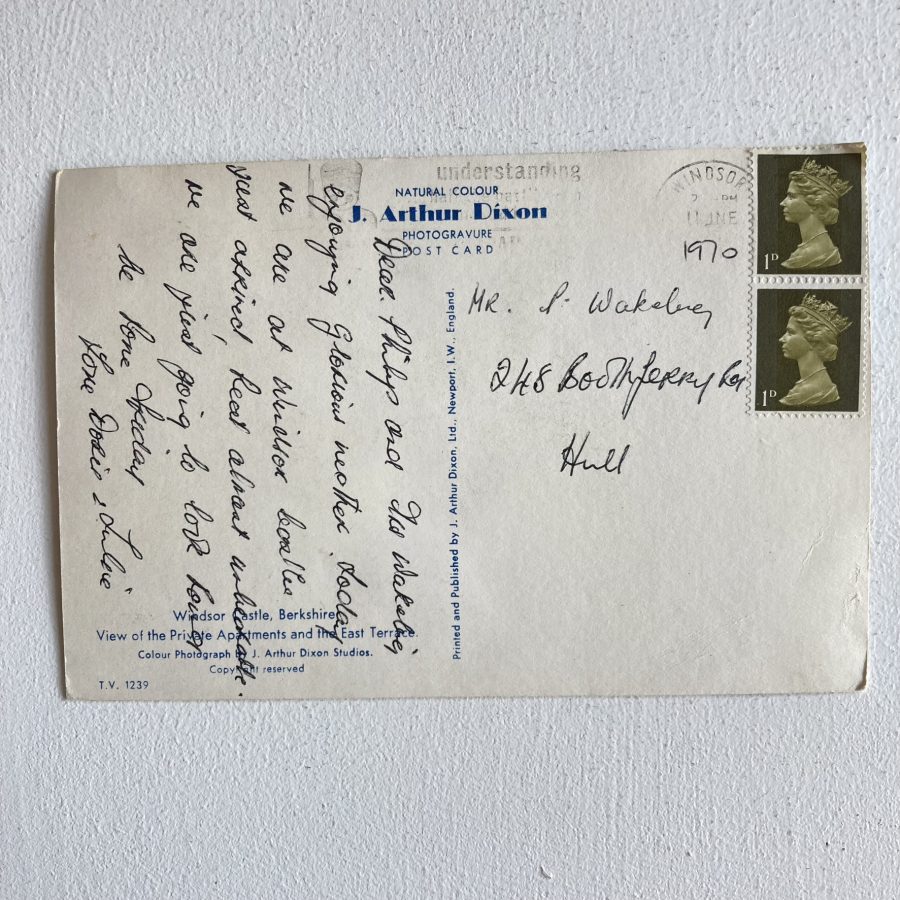 understanding
NATURAL COLOUR
J. Arthur Dixon
PHOTOGRAVURE
POST CARD
WINDSOR
JUNE
1970
1D
1D
MR. P. Wakeley
248 Boothferry Rd
Hull
Dear Philys and Mr Wakeley
enjoying Glorious weather. today
we are at Windsor Castle
just arrived, heat almost unbearable.
we are just going to look round
be home Friday
Love Doris &
Printed and Published by J. Arthur Dixon, Ltd., Newport, I.W., England.
Windsor Castle, Berkshire
View of the Private Apartments and the East Terrace.
Colour Photograph by J. Arthur Dixon Studios.
Copyright reserved
T.V. 1239